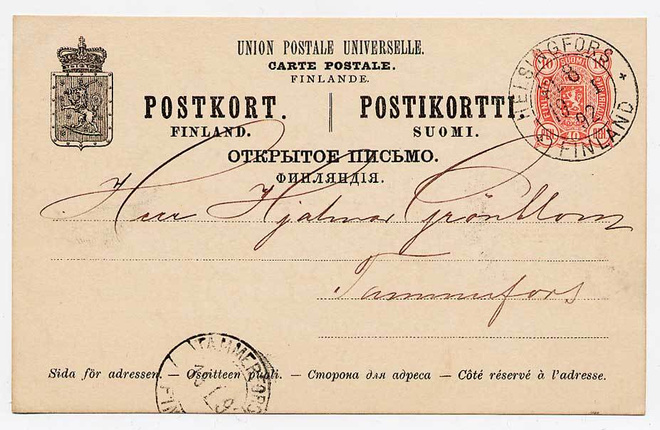 UNION POSTALE UNIVERSELLE.
CARTE POSTALE.
FINLANDE.
POSTKORT. POSTIKORTTI
FINLAND. SUOMI.
ОТКРЫТОЕ ПИСЬМО.
ФИНЛЯНДІЯ.
HELSINGFORS
FINLAND
10 SUOMI 10
10 10
Herr Hjalmar Grönblom
Tammerfors
TAMMERFORS
Sida för adressen. — Osoitteen puoli. — Сторона для адреса — Côté réservé à l'adresse.